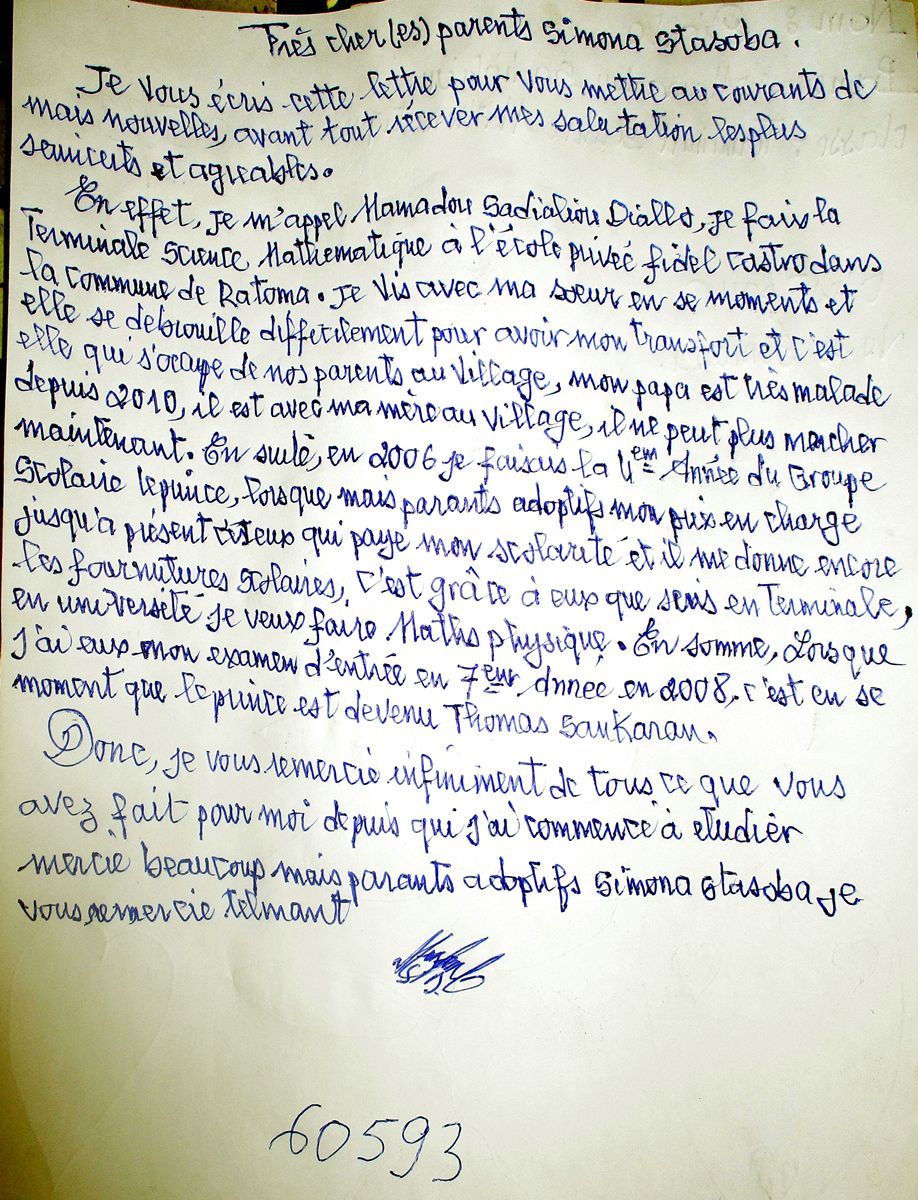 Très cher(es) parents Simona Stasoba.
Je vous écris cette lettre pour vous mettre au courants de
mais nouvelles, avant tout récever mes salutation les plus
senicerts et agreables.
En effet, je m'appel Mamadou Sadialiou Diallo, je fais la
Terminale Science Mathematique à l'école priveé fidel castro dans
la commune de Ratoma. Je vis avec ma sœur en se moments et
elle se debrouille difficilement pour avoir mon transport et c'est
elle qui s'ocupe de nos parents au village, mon papa est très malade
depuis 2010, il est avec ma mère au village, il ne peut plus marcher
maintenant. En suite, en 2006 je faisais la 4em Année du Groupe
Scolaire le prince, lorsque mais parants adoptifs mon prix en charge
jusqu'a présent c'est eux qui paye mon scolarité et il me donne encore
les fournitures scolaires, c'est grâce à eux que suis en Terminale,
en université je veux faire Maths physique. En somme, Lorsque
j'ai eux mon examen d'entrée en 7em Année en 2008. c'est en se
moment que le prince est devenu Thomas Sankaran.
Donc, je vous remercie infiniment de tous ce que vous
avez fait pour moi depuis qui j'ai commencé à etudier
mercie beaucoup mais parants adoptifs Simona Stasoba je
vous remercie telmant
60593